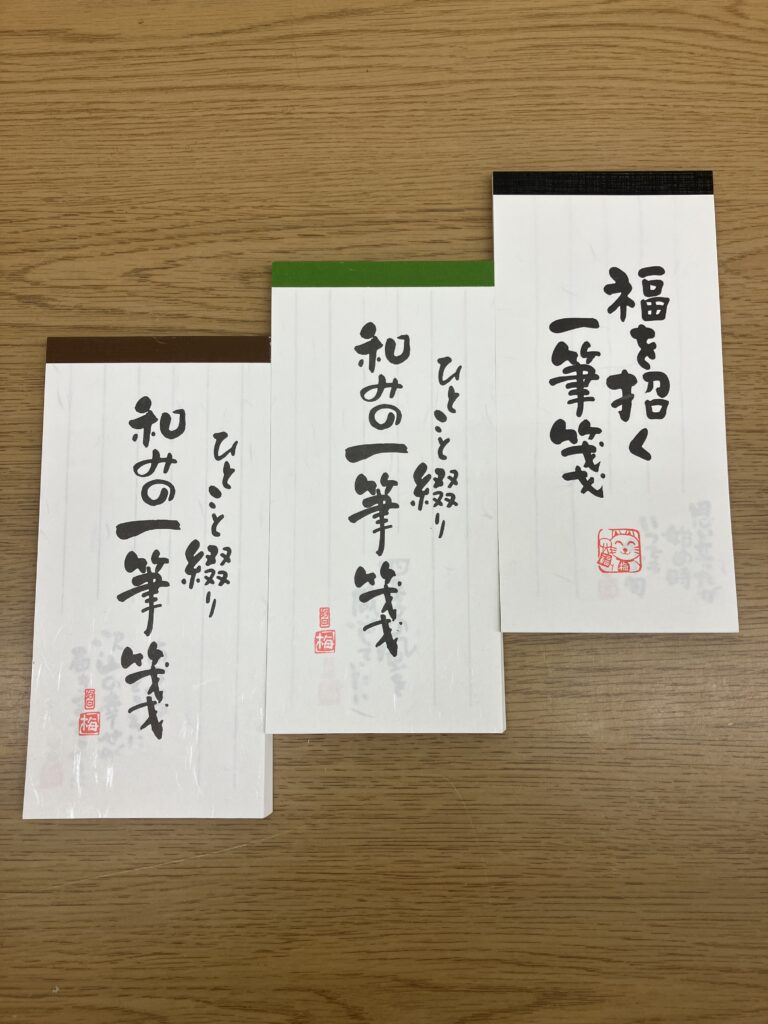 ひとこと綴り
和みの一筆箋
梅
ひとこと綴り
和みの一筆箋
梅
福を招く
一筆箋